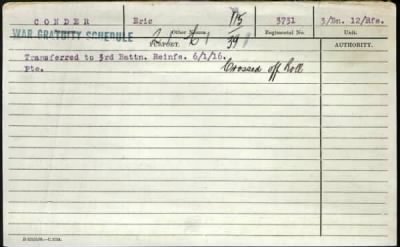 CONDER Eric 115 3731 3/Bn. 12/Rfs.
WAR GRATUITY SCHEDULE Other Names. Regimental No. Unit.
REPORT. 39 AUTHORITY.
Transferred to 3rd Battn. Reinfs. 6/1/16.
Pte. Crossed off Roll